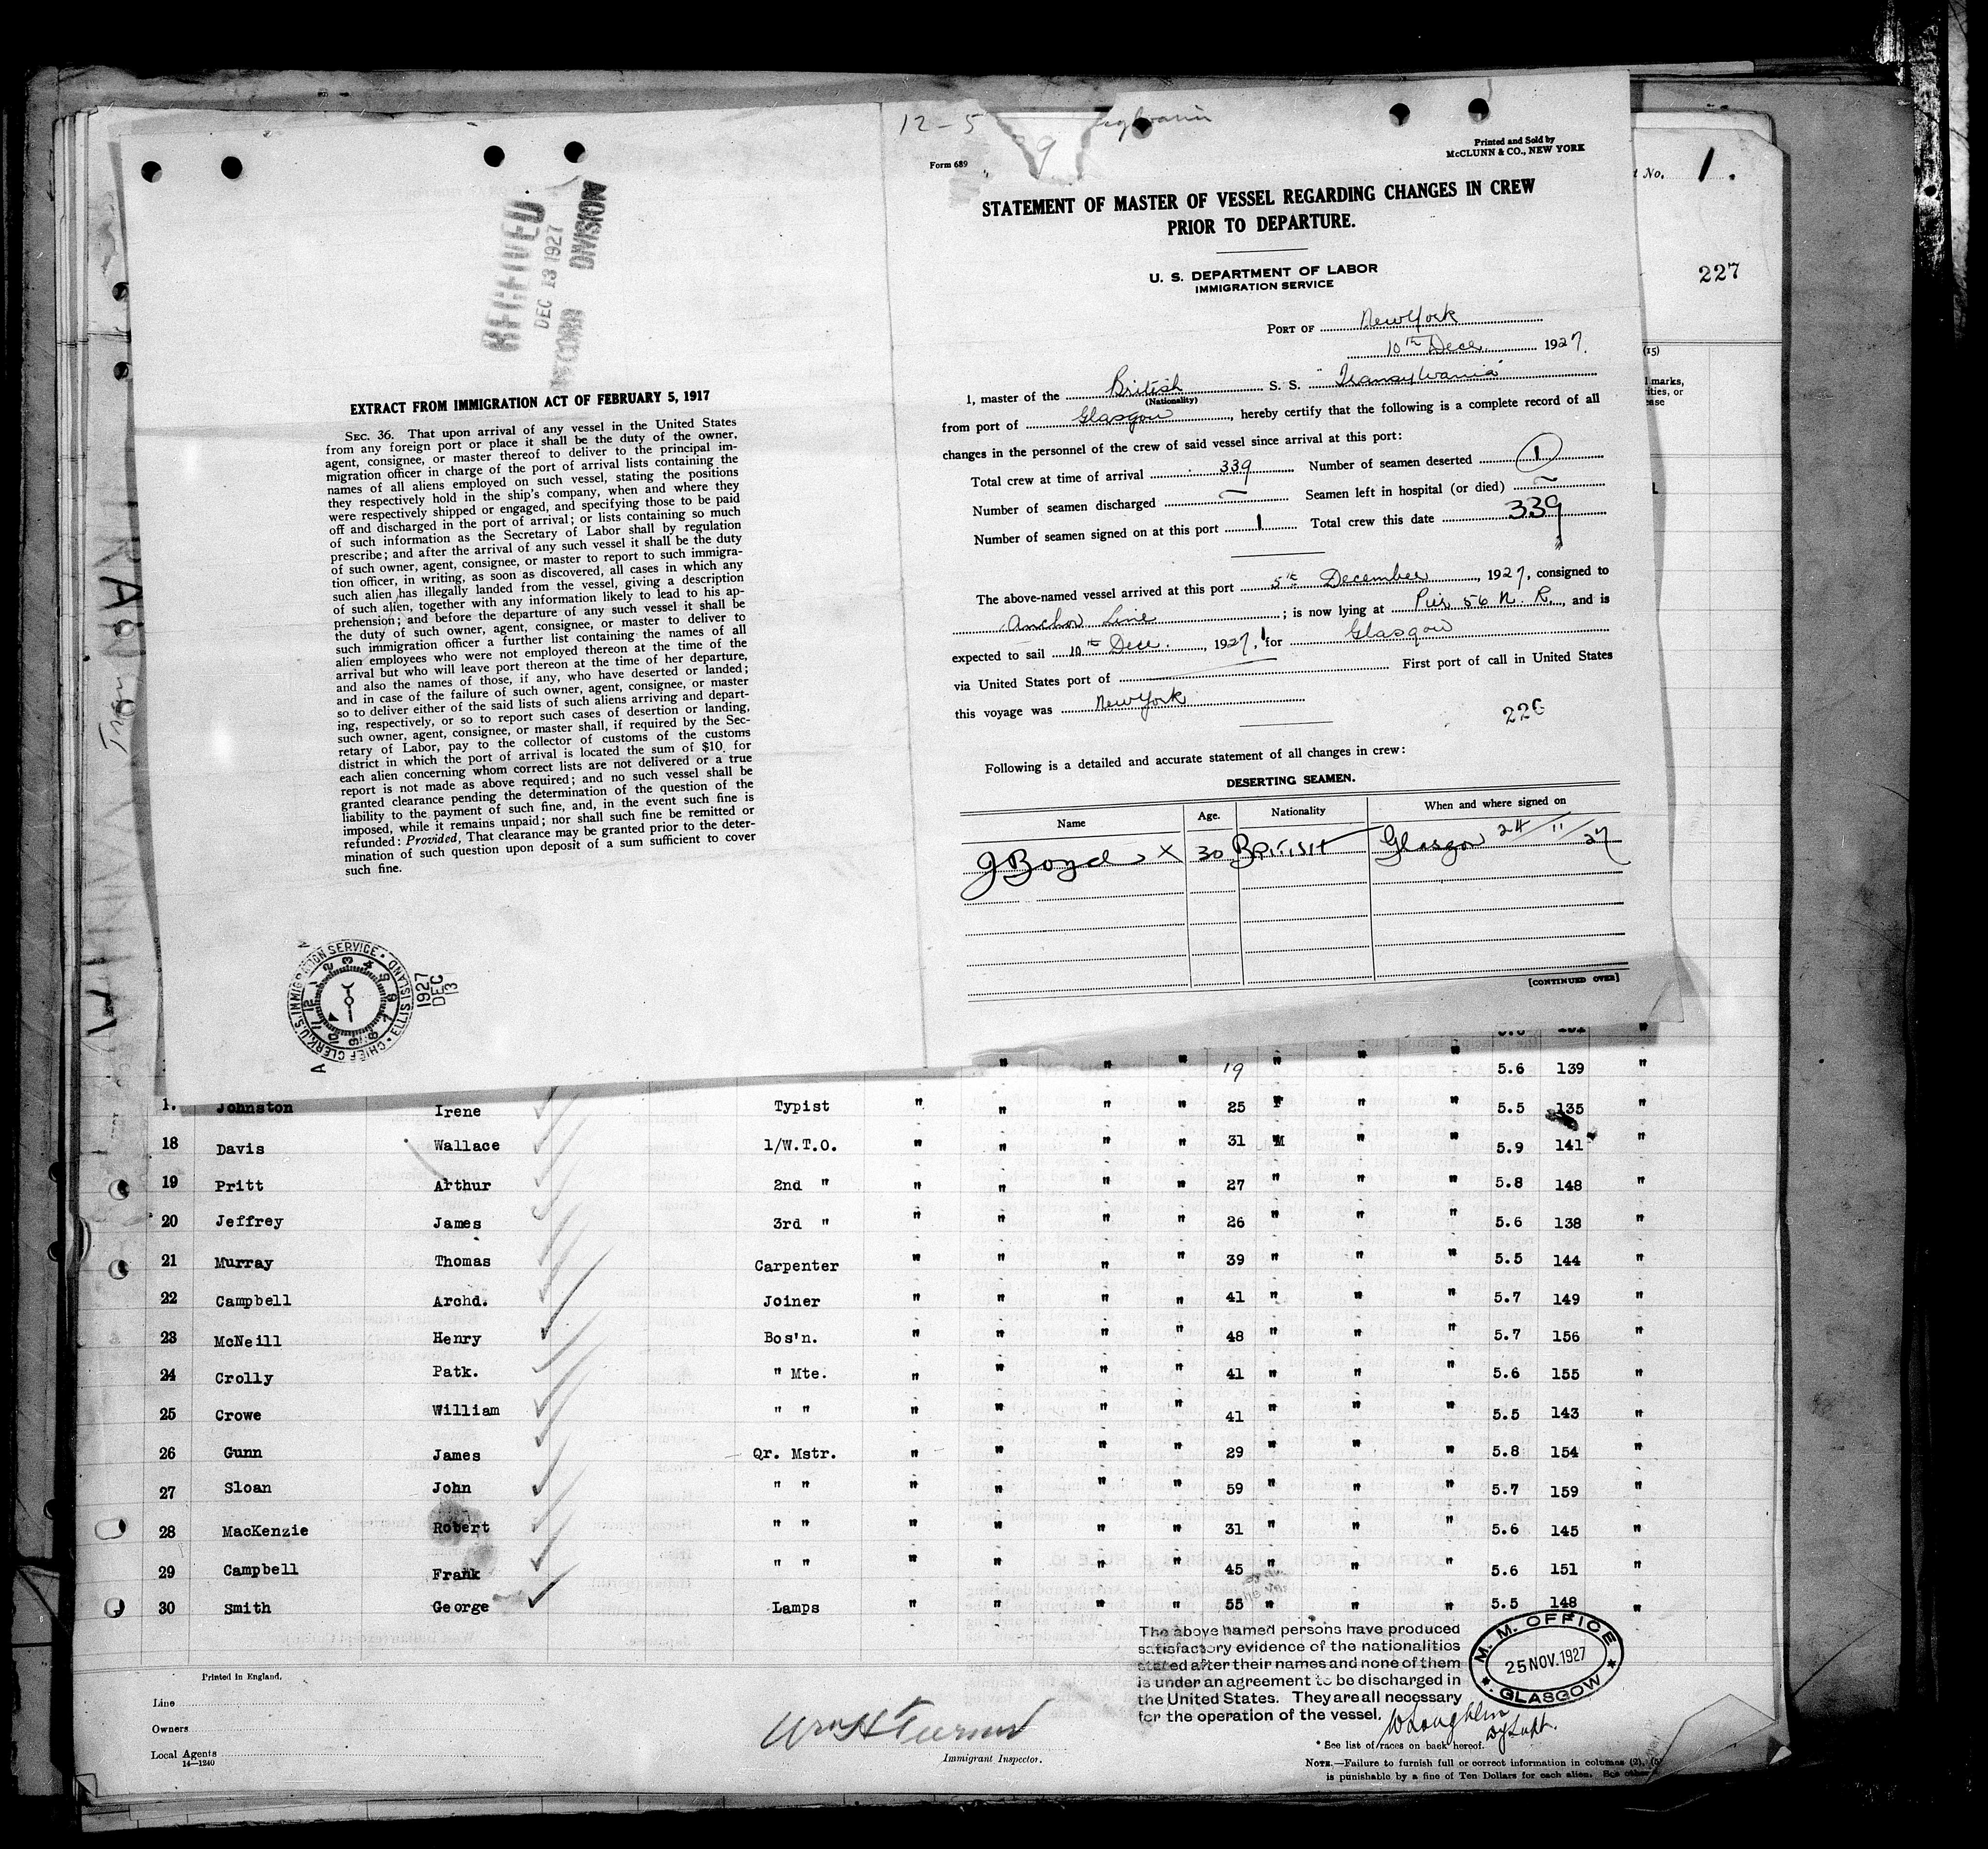 RECEIVED
DEC 13 1927
RECORD DIVISION
EXTRACT FROM IMMIGRATION ACT OF FEBRUARY 5, 1917
SEC. 36. That upon arrival of any vessel in the United States
from any foreign port or place it shall be the duty of the owner,
agent, consignee, or master thereof to deliver to the principal im-
migration officer in charge of the port of arrival lists containing the
names of all aliens employed on such vessel, stating the positions
they respectively hold in the ship's company, when and where they
were respectively shipped or engaged, and specifying those to be paid
off and discharged in the port of arrival; or lists containing so much
of such information as the Secretary of Labor shall by regulation
prescribe; and after the arrival of any such vessel it shall be the duty
of such owner, agent, consignee, or master to report to such immigra-
tion officer, in writing, as soon as discovered, all cases in which any
such alien has illegally landed from the vessel, giving a description
of such alien, together with any information likely to lead to his ap-
prehension; and before the departure of any such vessel it shall be
the duty of such owner, agent, consignee, or master to deliver to
such immigration officer a further list containing the names of all
alien employees who were not employed thereon at the time of the
arrival but who will leave port thereon at the time of her departure,
and also the names of those, if any, who have deserted or landed;
and in case of the failure of such owner, agent, consignee, or master
so to deliver either of the said lists of such aliens arriving and depart-
ing, respectively, or so to report such cases of desertion or landing,
such owner, agent, consignee, or master shall, if required by the Sec-
retary of Labor, pay to the collector of customs of the customs
district in which the port of arrival is located the sum of $10 for
each alien concerning whom correct lists are not delivered or a true
report is not made as above required; and no such vessel shall be
granted clearance pending the determination of the question of the
liability to the payment of such fine, and, in the event such fine is
imposed, while it remains unpaid; nor shall such fine be remitted or
refunded: Provided, That clearance may be granted prior to the deter-
mination of such question upon deposit of a sum sufficient to cover
such fine.
CHIEF CLERK U.S. IMMIGRATION SERVICE · ELLIS ISLAND
1927
DEC
13
12-5
Form 689
Printed and Sold by
McCLUNN & CO., NEW YORK
STATEMENT OF MASTER OF VESSEL REGARDING CHANGES IN CREW
PRIOR TO DEPARTURE.
U. S. DEPARTMENT OF LABOR
IMMIGRATION SERVICE
PORT OF New York
10th Dece. 1927.
I, master of the British S. S. "Transylvania"
(Nationality)
from port of Glasgow, hereby certify that the following is a complete record of all
changes in the personnel of the crew of said vessel since arrival at this port:
Total crew at time of arrival 339 Number of seamen deserted 1
Number of seamen discharged ~ Seamen left in hospital (or died) ~
Number of seamen signed on at this port 1 Total crew this date 339
The above-named vessel arrived at this port 5th December, 1927, consigned to
Anchor Line; is now lying at Pier 56 N. R., and is
expected to sail 10th Dece., 1927, for Glasgow
via United States port of First port of call in United States
this voyage was New York
226
Following is a detailed and accurate statement of all changes in crew:
DESERTING SEAMEN.
Name Age. Nationality When and where signed on
J Boyd X 30 British Glasgow 24/11/27
[CONTINUED OVER]
No. 1.
227
(15)
marks,
ities, or
ease
" " " 19 " " " 5.6 139 "
1. Johnston Irene Typist " " " " 25 F " " 5.5 135 "
18 Davis Wallace 1/W.T.O. " " " " 31 M " " 5.9 141 "
19 Pritt Arthur 2nd " " " " " 27 " " " 5.8 148 "
20 Jeffrey James 3rd " " " " " 26 " " " 5.6 138 "
21 Murray Thomas Carpenter " " " " 39 " " " 5.5 144 "
22 Campbell Archd. Joiner " " " " 41 " " " 5.7 149 "
23 McNeill Henry Bos'n. " " " " 48 " " " 5.7 156 "
24 Crolly Patk. " Mte. " " " " 41 " " " 5.6 155 "
25 Crowe William " " " " " " 41 " " " 5.5 143 "
26 Gunn James Qr. Mstr. " " " " 29 " " " 5.8 154 "
27 Sloan John " " " " " " 59 " " " 5.7 159 "
28 MacKenzie Robert " " " " " " 31 " " " 5.6 145 "
29 Campbell Frank " " " " " " 45 " " " 5.6 151 "
30 Smith George Lamps " " " " 55 " " " 5.5 148 "
The above named persons have produced
satisfactory evidence of the nationalities
stated after their names and none of them
is under an agreement to be discharged in
the United States. They are all necessary
for the operation of the vessel.
M. M. OFFICE
25 NOV. 1927
GLASGOW
Printed in England.
Line
Owners
Local Agents
14—1240
Wm H Turner
Immigrant Inspector.
* See list of races on back hereof.
NOTE.—Failure to furnish full or correct information in columns (2), (5)
is punishable by a fine of Ten Dollars for each alien. See other